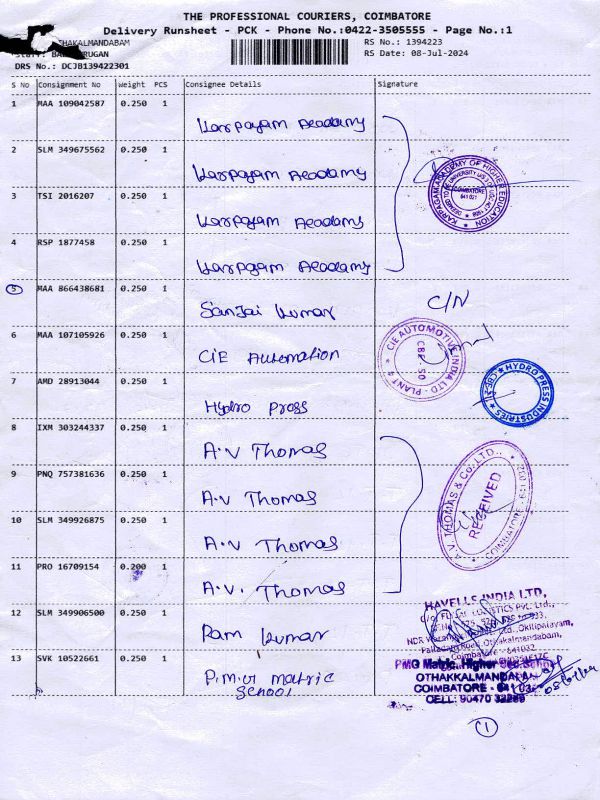 THE PROFESSIONAL COURIERS, COIMBATORE
Delivery Runsheet - PCK - Phone No.:0422-3505555 - Page No.:1
OTHAKALMANDABAM
RS No.: 1394223
RUGAN
RS Date: 08-Jul-2024
DRS No.: DCJB139422301
S No Consignment No Weight PCS Consignee Details Signature
1 MAA 109042587 0.250 1
Karpagam Academy
2 SLM 349675562 0.250 1
Karpagam Academy
KARPAGAM ACADEMY OF HIGHER EDUCATION
COIMBATORE
641 021
3 TSI 2016207 0.250 1
Karpagam Academy
4 RSP 1877458 0.250 1
Karpagam Academy
5 MAA 866438681 0.250 1
Sanjai Kumar
C/N
6 MAA 107105926 0.250 1
CiE Automation
CIE AUTOMOTIVE INDIA LTD - PLANT
7 AMD 28913044 0.250 1
Hydro Press
HYDRO PRESS INDUSTRIES
CBE-21
8 IXM 303244337 0.250 1
A.V Thomas
9 PNQ 757381636 0.250 1
A.V Thomas
A.V. THOMAS & Co. LTD.,
RECEIVED
COIMBATORE - 641 032
10 SLM 349926875 0.250 1
A.V Thomas
11 PRO 16709154 0.200 1
A.V. Thomas
HAVELLS INDIA LTD,
12 SLM 349906500 0.250 1
Ram Kumar
Coimbatore - 641032
13 SVK 10522661 0.250 1
P.M.G Matric
School
PMG Matric. Higher Sec. School
OTHAKKALMANDAPAM
COIMBATORE - 641 032
CELL: 90470 32299
1